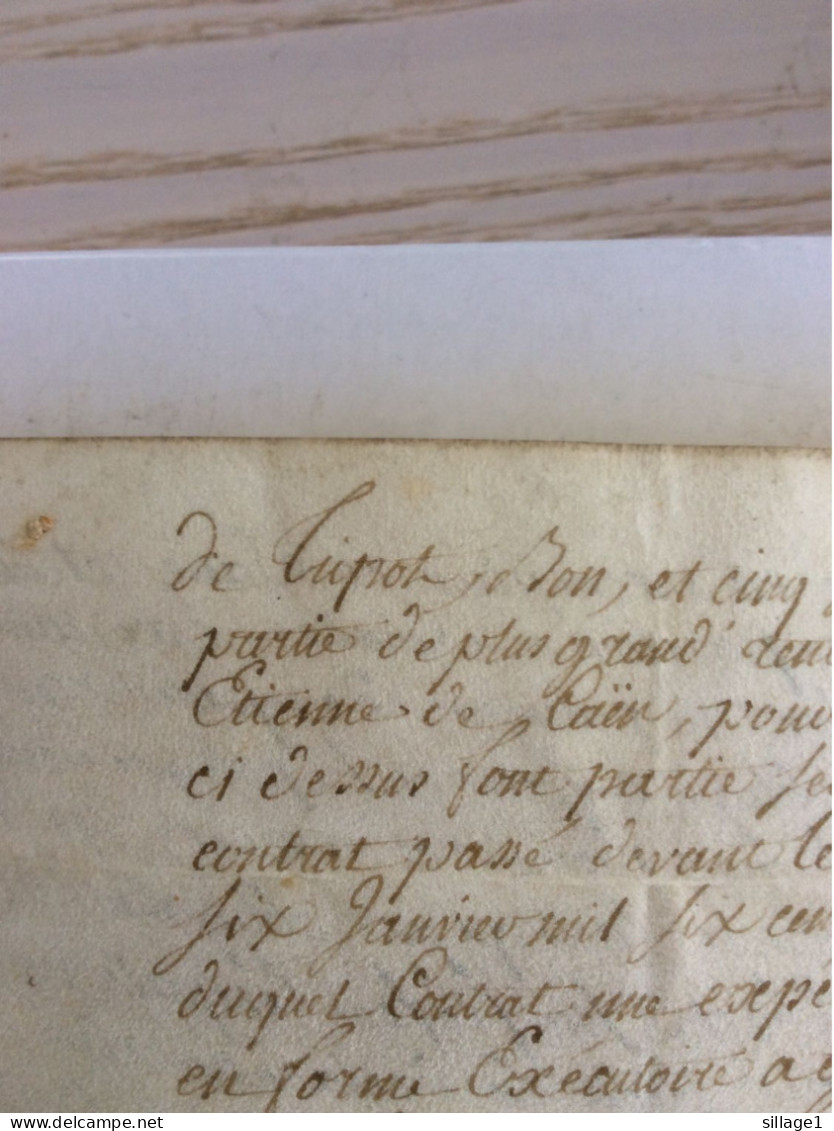 de Tripot, Bon, et cinq
partie de plus grand
Etienne de Caën, pour
ci dessus font partie
contrat passé devant le
six Janvier mil six cen
duquel Contrat une expé
en forme Exécutoire a
delcampe.net
sillage1